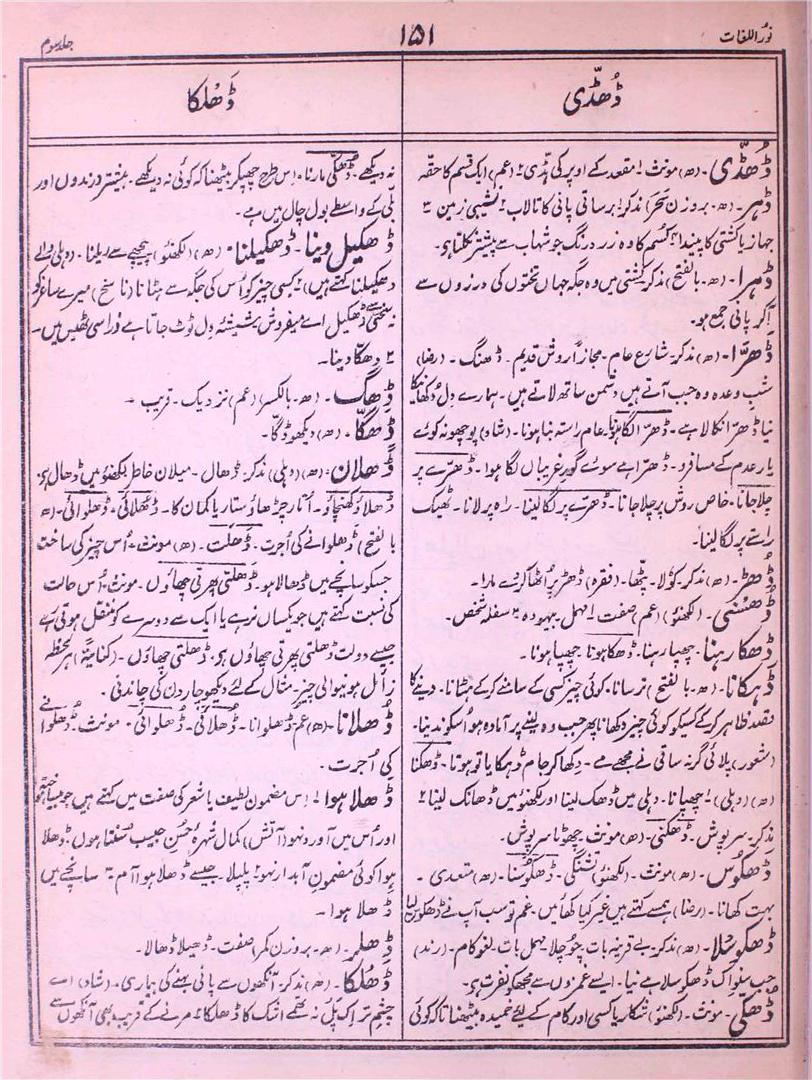 نورُاللغات
۱۵۱
جلد سوم
ڈُھڈّی
ڈَھلکا
ڈُھڈّی۔ (ھ) مونث ۱ مقعد کے اوپر کی ہڈی ۲ (عم) ایک قسم کا حقہ
ڈہر۔ (ھ۔ بروزن بَحَر) مذکر ۱ برساتی پانی کا تالاب ۲ نشیبی زمین ۳
جہاز یا کشتی کا پیندا ۴ کسُم کا وہ زرد رنگ جو شہاب سے پیشتر نکلتا ہو۔
ڈہرا۔ (ھ۔ بالفتح) مذکر کشتی میں وہ جگہ جہاں تختوں کی درزوں سے
آکر پانی جمع ہو۔
ڈَھرّا۔ (ھ) مذکر۔ شارع عام۔ مجازاً روش قدیم۔ ڈھنگ۔ (رضا)
شبِ وعدہ وہ جب آتے ہیں دشمن ساتھ لاتے ہیں۔ ہمارے دل دُکھانیکا
نیا ڈھرّا نکالا ہے۔ ڈھرّا لگا ہونا۔ عام راستہ بنا ہونا۔ (شاد) پوچھو نہ کوئے
یار عدم کے مسافرو۔ ڈھرّا ہے سوئے گورِ غریباں لگا ہوا۔ ڈھرّے پر
چلا جانا۔ خاص روش پر چلا جانا۔ ڈھرّے پر لگا لینا۔ راہ پر لانا۔ ٹھیک
راستے پر لگا لینا۔
ڈُھڑ۔ (ھ) مذکر۔ کولا۔ پٹھا۔ (فقرہ) ڈھڑ پر اُٹھا کر دے مارا۔
ڈُھسنی۔ (لکھنؤ) (عم) صفت ۱ مہمل۔ بیہودہ ۲ سفلہ شخص۔
ڈھکا رہنا۔ چھپا رہنا۔ ڈھکا ہونا۔ چھپا ہونا۔
ڈَہکانا۔ (ھ۔ بالفتح) ترسانا۔ کوئی چیز کسی کے سامنے کر کے ہٹانا۔ دینے کا
قصد ظاہر کر کے کسیکو کوئی چیز دکھانا پھر جب وہ لینے پر آمادہ ہو اُسکو نہ دینا۔
(شعور) پلائی گر نہ ساقی نے مجھے مے۔ دکھا کر جام ڈہکایا تو ہوتا۔ ڈھکنا
(ھ) (دہلی) ۱ چھپانا۔ دہلی میں ڈھک لینا اور لکھنؤ میں ڈھانک لینا ۲
مذکر۔ سرپوش۔ ڈھکنی۔ (ھ) مونث۔ چھوٹا سرپوش۔
ڈھکوس۔ (ھ) مونث۔ (لکھنؤ) تشنگی۔ ڈھکوسنا۔ (ھ) متعدی۔
بہت کھانا۔ (رضا) ہمسے کہتے ہیں غیر کیا کھائیں۔ غم تو سب آپ نے ڈھکوس لیا
ڈھکوسلا۔ (ھ) مذکر۔ بے قرینہ بات۔ چوچلا۔ مہمل بات۔ لغو کام۔ (رند)
جب سنو اک ڈھکوسلا ہے نیا۔ ایسے غمزوں سے مجھکو نفرت ہے۔
ڈُھکّی۔ مونث۔ (لکھنؤ) شکار یا کسی اور کام کے لیئے خمیدہ بیٹھنا تاکہ کوئی
نہ دیکھے۔ ڈھکّی مارنا۔ اس طرح چھپکر بیٹھنا کہ کوئی نہ دیکھے۔ بیشتر درندوں اور
بلّی کے واسطے بول چال میں ہے۔
ڈھکیل دینا۔ ڈھکیلنا۔ (ھ) (لکھنؤ) پیچھے سے ریلنا۔ (دہلی والے
دھکیلنا کہتے ہیں) ۲ کسی چیز کو اُس کی جگہ سے ہٹانا (ناسخ) میرے ساغر کو
نہ سختی سے ڈھکیل اے میفروش۔ شیشۂ دل ٹوٹ جاتا ہے ذرا سی ٹھیس میں۔
۳ دھکّا دینا۔
ڈِھگ۔ (ھ۔ بالکسر) (عم) نزدیک۔ قریب۔
ڈِھگّا۔ (ھ) دیکھو ڈگّا۔
ڈُھلان۔ (ھ) (دہلی) مذکر۔ ڈھال۔ میلان خاطر۔ لکھنؤ میں ڈھال ہے۔
ڈُھلاؤ کھنچاؤ۔ اُتار چڑھاؤ ستار یا کمان کا۔ ڈھلائی۔ ڈھلوائی۔ (ھ
بالفتح) ڈھلوانے کی اُجرت۔ ڈھلت۔ (ھ) مونث۔ اُس چیز کی ساخت
جسکو سانچے میں ڈھالا ہو۔ ڈھلتی پھرتی چھاؤں۔ مونث۔ اُس حالت
کی نسبت کہتے ہیں جو یکساں نہ رہے یا ایک سے دوسرے کو منتقل ہوتی رہے
جیسے دولت ڈھلتی پھرتی چھاؤں ہے۔ ڈھلتی چھاؤں۔ (کنایۃً) ہر لحظہ
زائل ہونیوالی چیز۔ مثال کے لئے دیکھو چار دن کی چاندنی۔
ڈُھلانا۔ (ھ) عم ڈھلوانا۔ ڈُھلائی۔ ڈھلوائی۔ مونث۔ ڈُھلوانے
کی اُجرت۔
ڈھلا ہوا۔ ۱ اس مضمون لطیف یا شعر کی صفت میں کہتے ہیں جو بیساختہ ہو
اور اُس میں آورد نہو (آتش) کمال شہرۂ حُسنِ حبیب سُنتا ہوں۔ ڈھلا
ہوا کوئی مضمونِ آبدار نہو ۲ پلپلا۔ جیسے ڈھلا ہوا آم ۳ سانچے میں
ڈھلا ہوا۔
ڈھلر۔ (ھ۔ بروزن کمر) صفت۔ ڈھیلا ڈھالا۔
ڈَھلکا۔ (ھ) مذکر۔ آنکھوں سے پانی بہنے کی بیماری۔ (شاد) اے
چشمِ تر اک پَل نہ تھمے اشک کا ڈھلکا ۲ مرنے کے قریب بھی آنکھوں سے